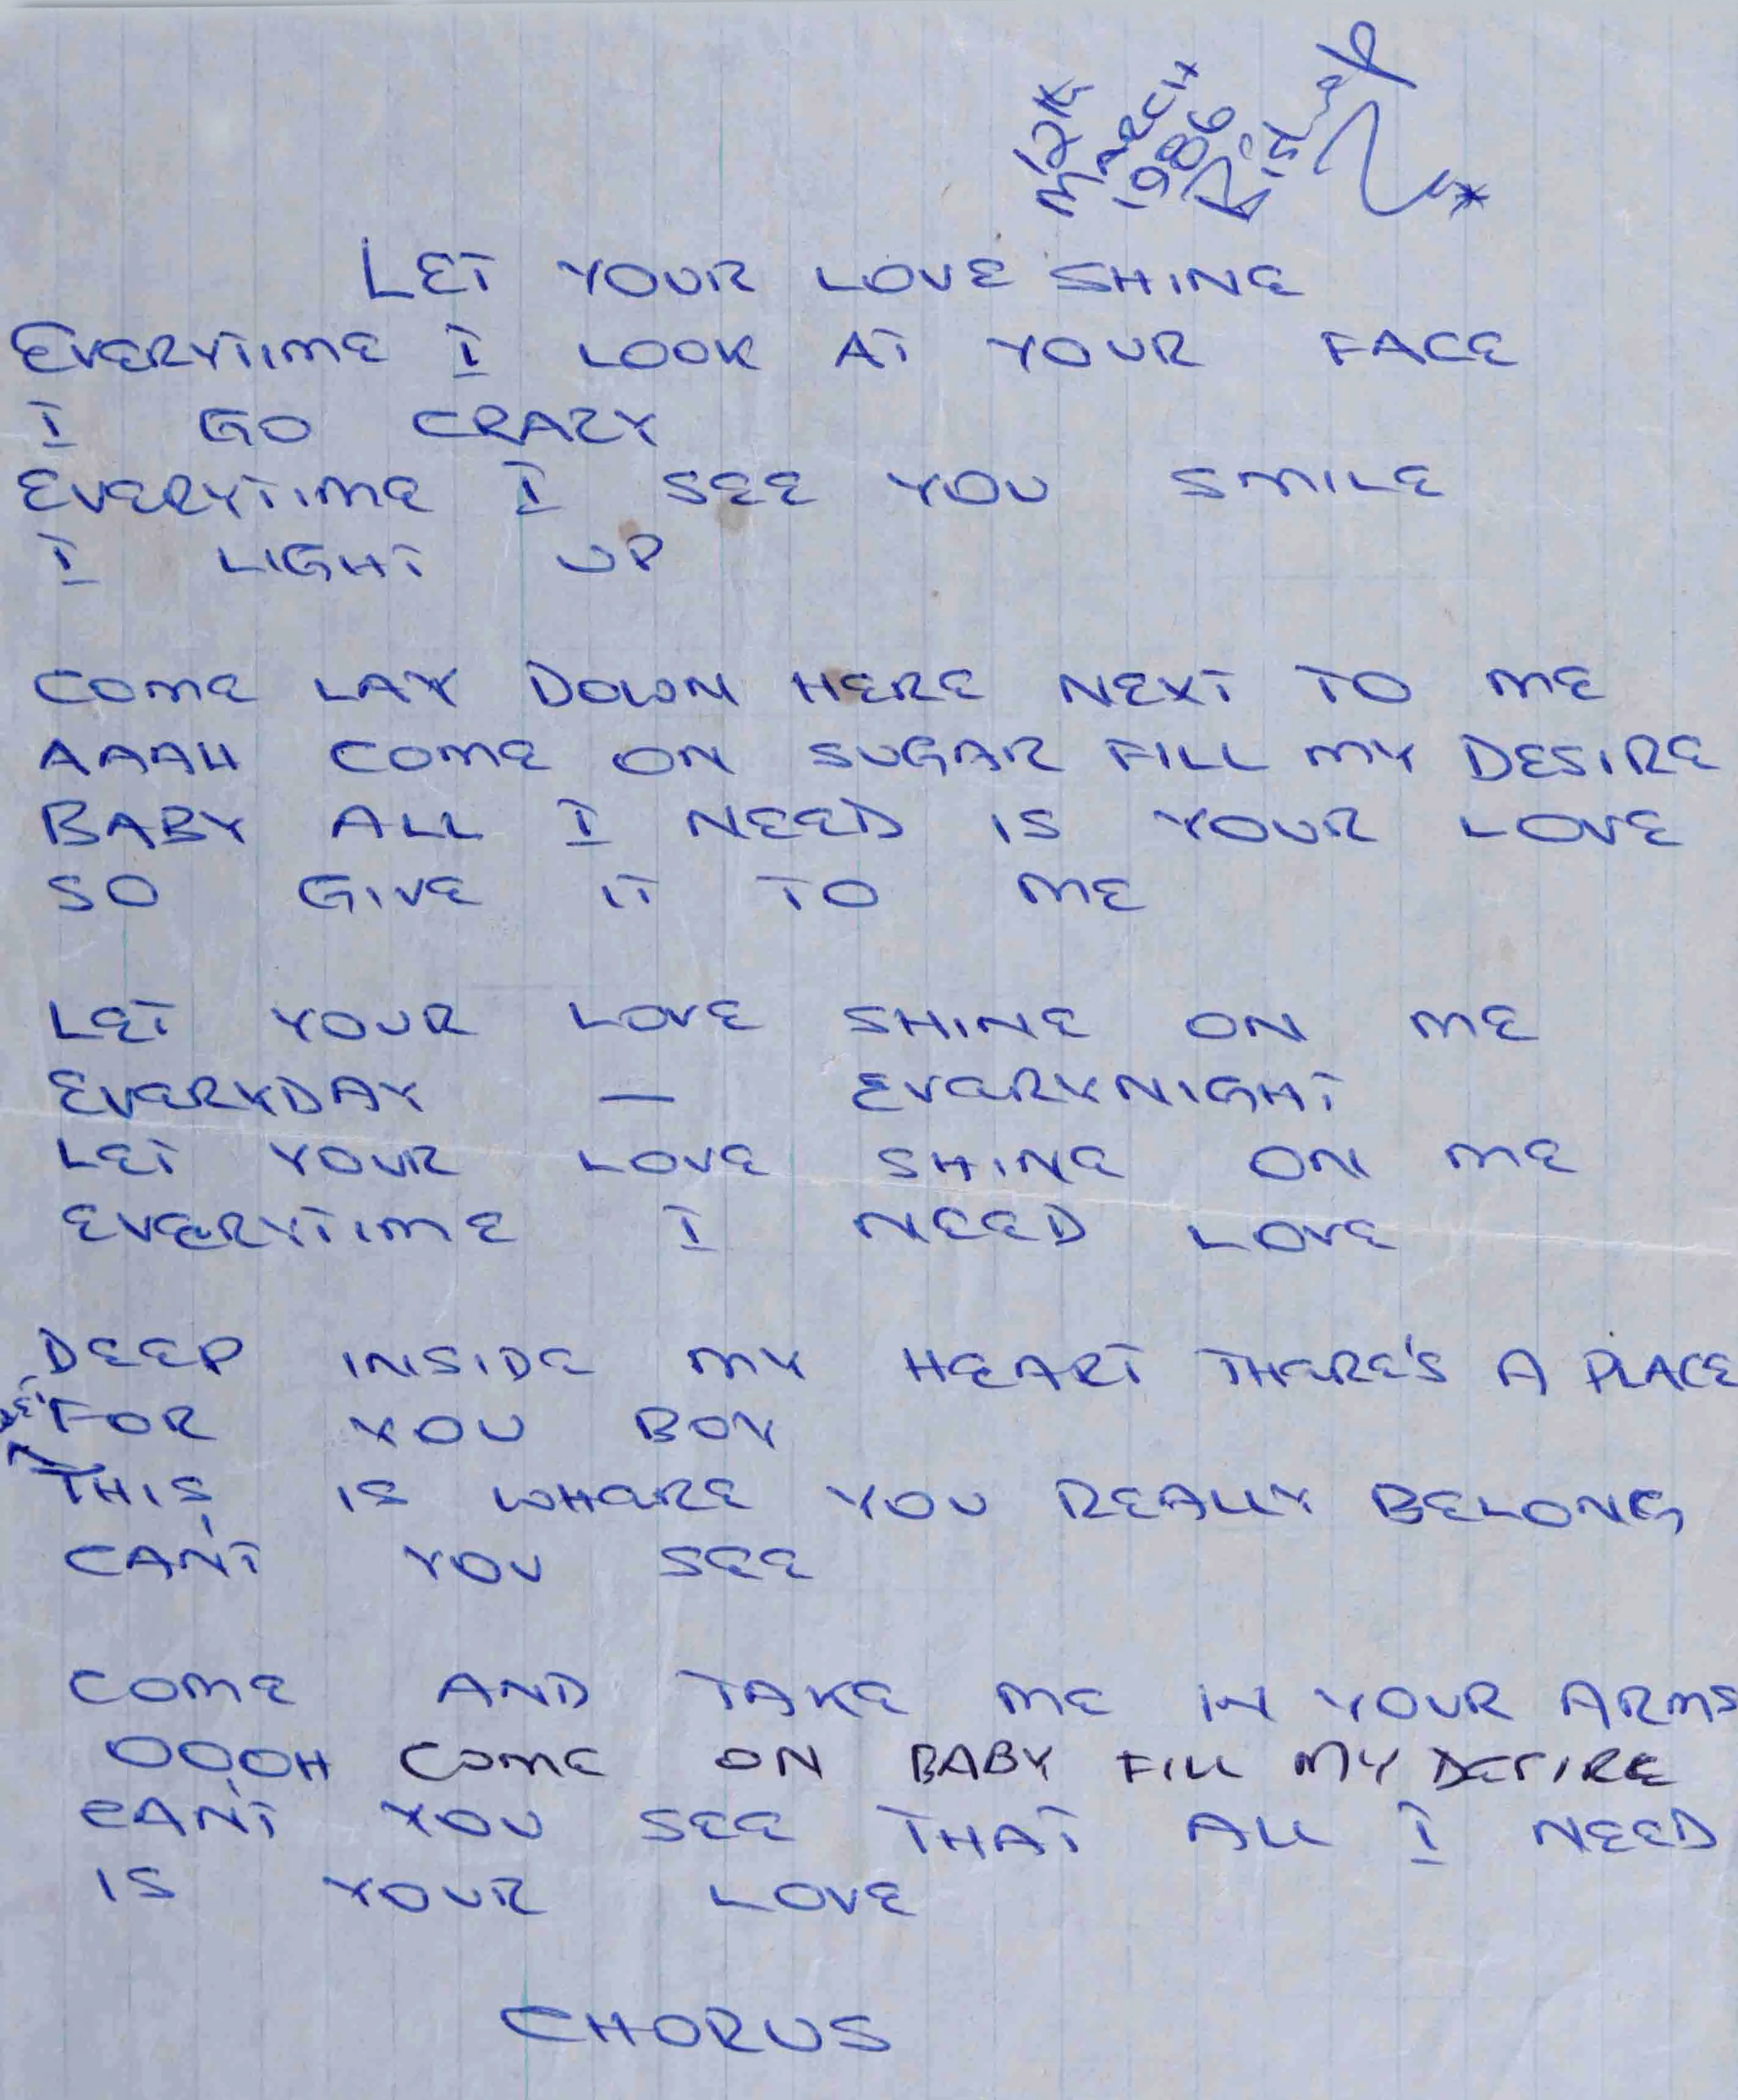 MARCH
1986
LET YOUR LOVE SHINE
EVERYTIME I LOOK AT YOUR FACE
I GO CRAZY
EVERYTIME I SEE YOU SMILE
I LIGHT UP
COME LAY DOWN HERE NEXT TO ME
AAAH COME ON SUGAR FILL MY DESIRE
BABY ALL I NEED IS YOUR LOVE
SO GIVE IT TO ME
LET YOUR LOVE SHINE ON ME
EVERYDAY — EVERYNIGHT
LET YOUR LOVE SHINE ON ME
EVERYTIME I NEED LOVE
DEEP INSIDE MY HEART THERE'S A PLACE
FOR YOU BOY
THIS IS WHERE YOU REALLY BELONG
CAN'T YOU SEE
COME AND TAKE ME IN YOUR ARMS
OOOH COME ON BABY FILL MY DESIRE
CAN'T YOU SEE THAT ALL I NEED
IS YOUR LOVE
CHORUS